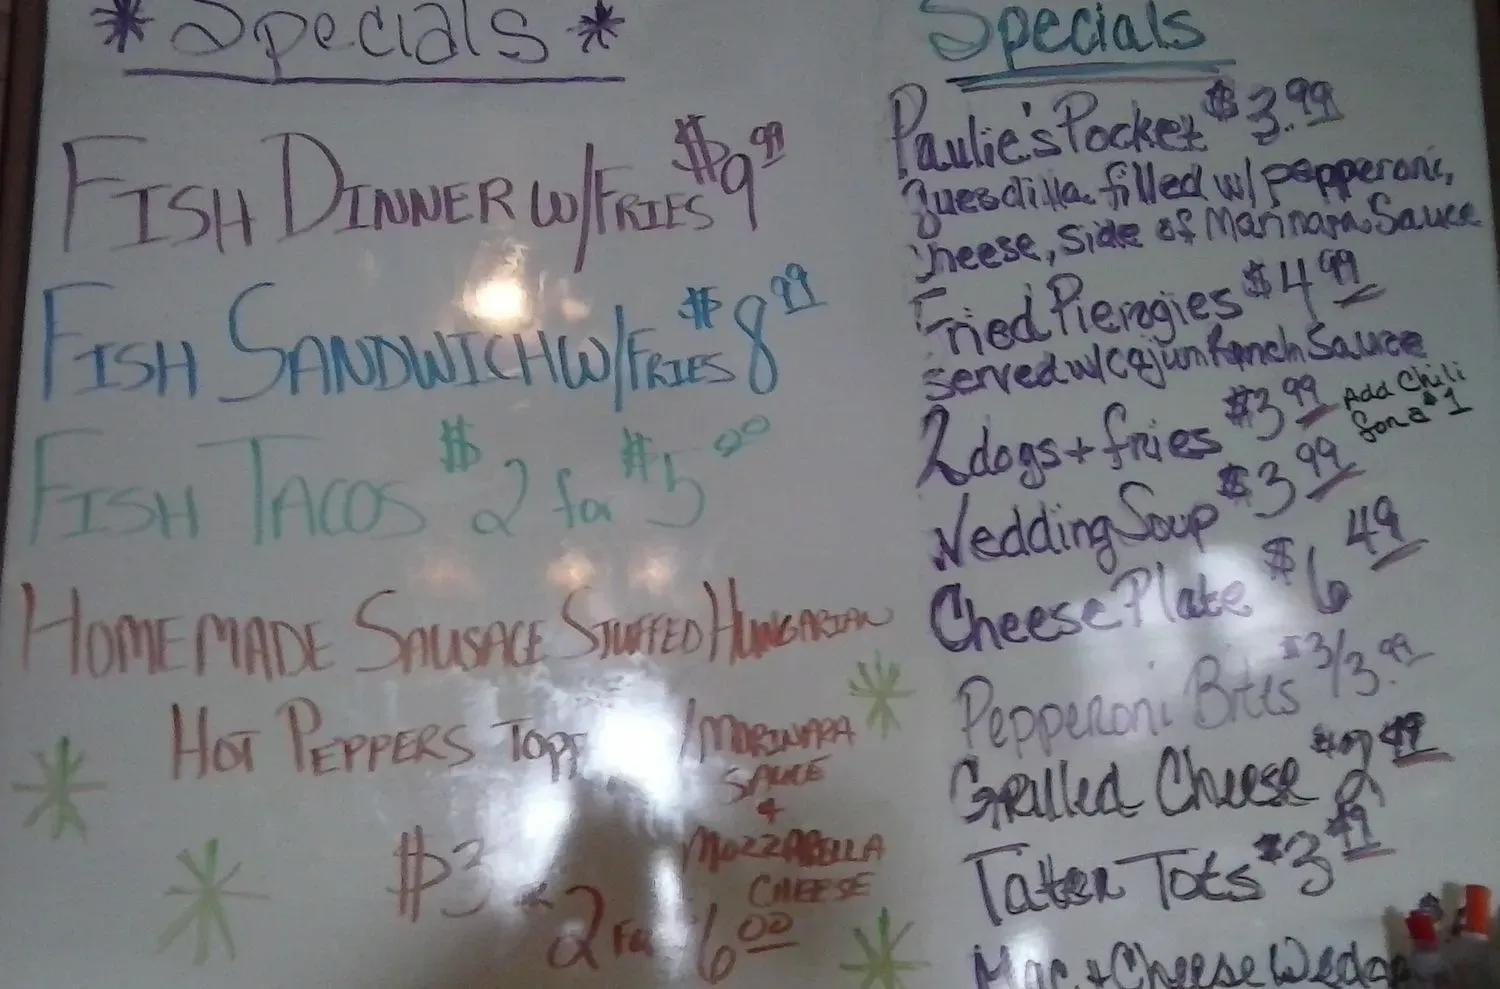 *Specials*
FISH DINNER W/FRIES $9.99
FISH SANDWICH W/FRIES $8.99
FISH TACOS $2 for $5.00
HOMEMADE SAUSAGE STUFFED HUNGARIAN
HOT PEPPERS /MARINARA
SAUCE
+
MOZZARELLA
CHEESE
$3 or
2 For $6.00
Specials
Paulie's Pocket $3.99
quesdilla filled w/pepperoni,
cheese, side of Marinara Sauce
Fried Pierogies $4.99
served w/cajun Ranch Sauce
2 dogs + fries $3.99 Add Chili
for a $1
Wedding Soup $3.99
Cheese Plate $6.49
Pepperoni Bites $3/3.99
Grilled Cheese $2.49
Tatter Tots $3.49
Mac + Cheese